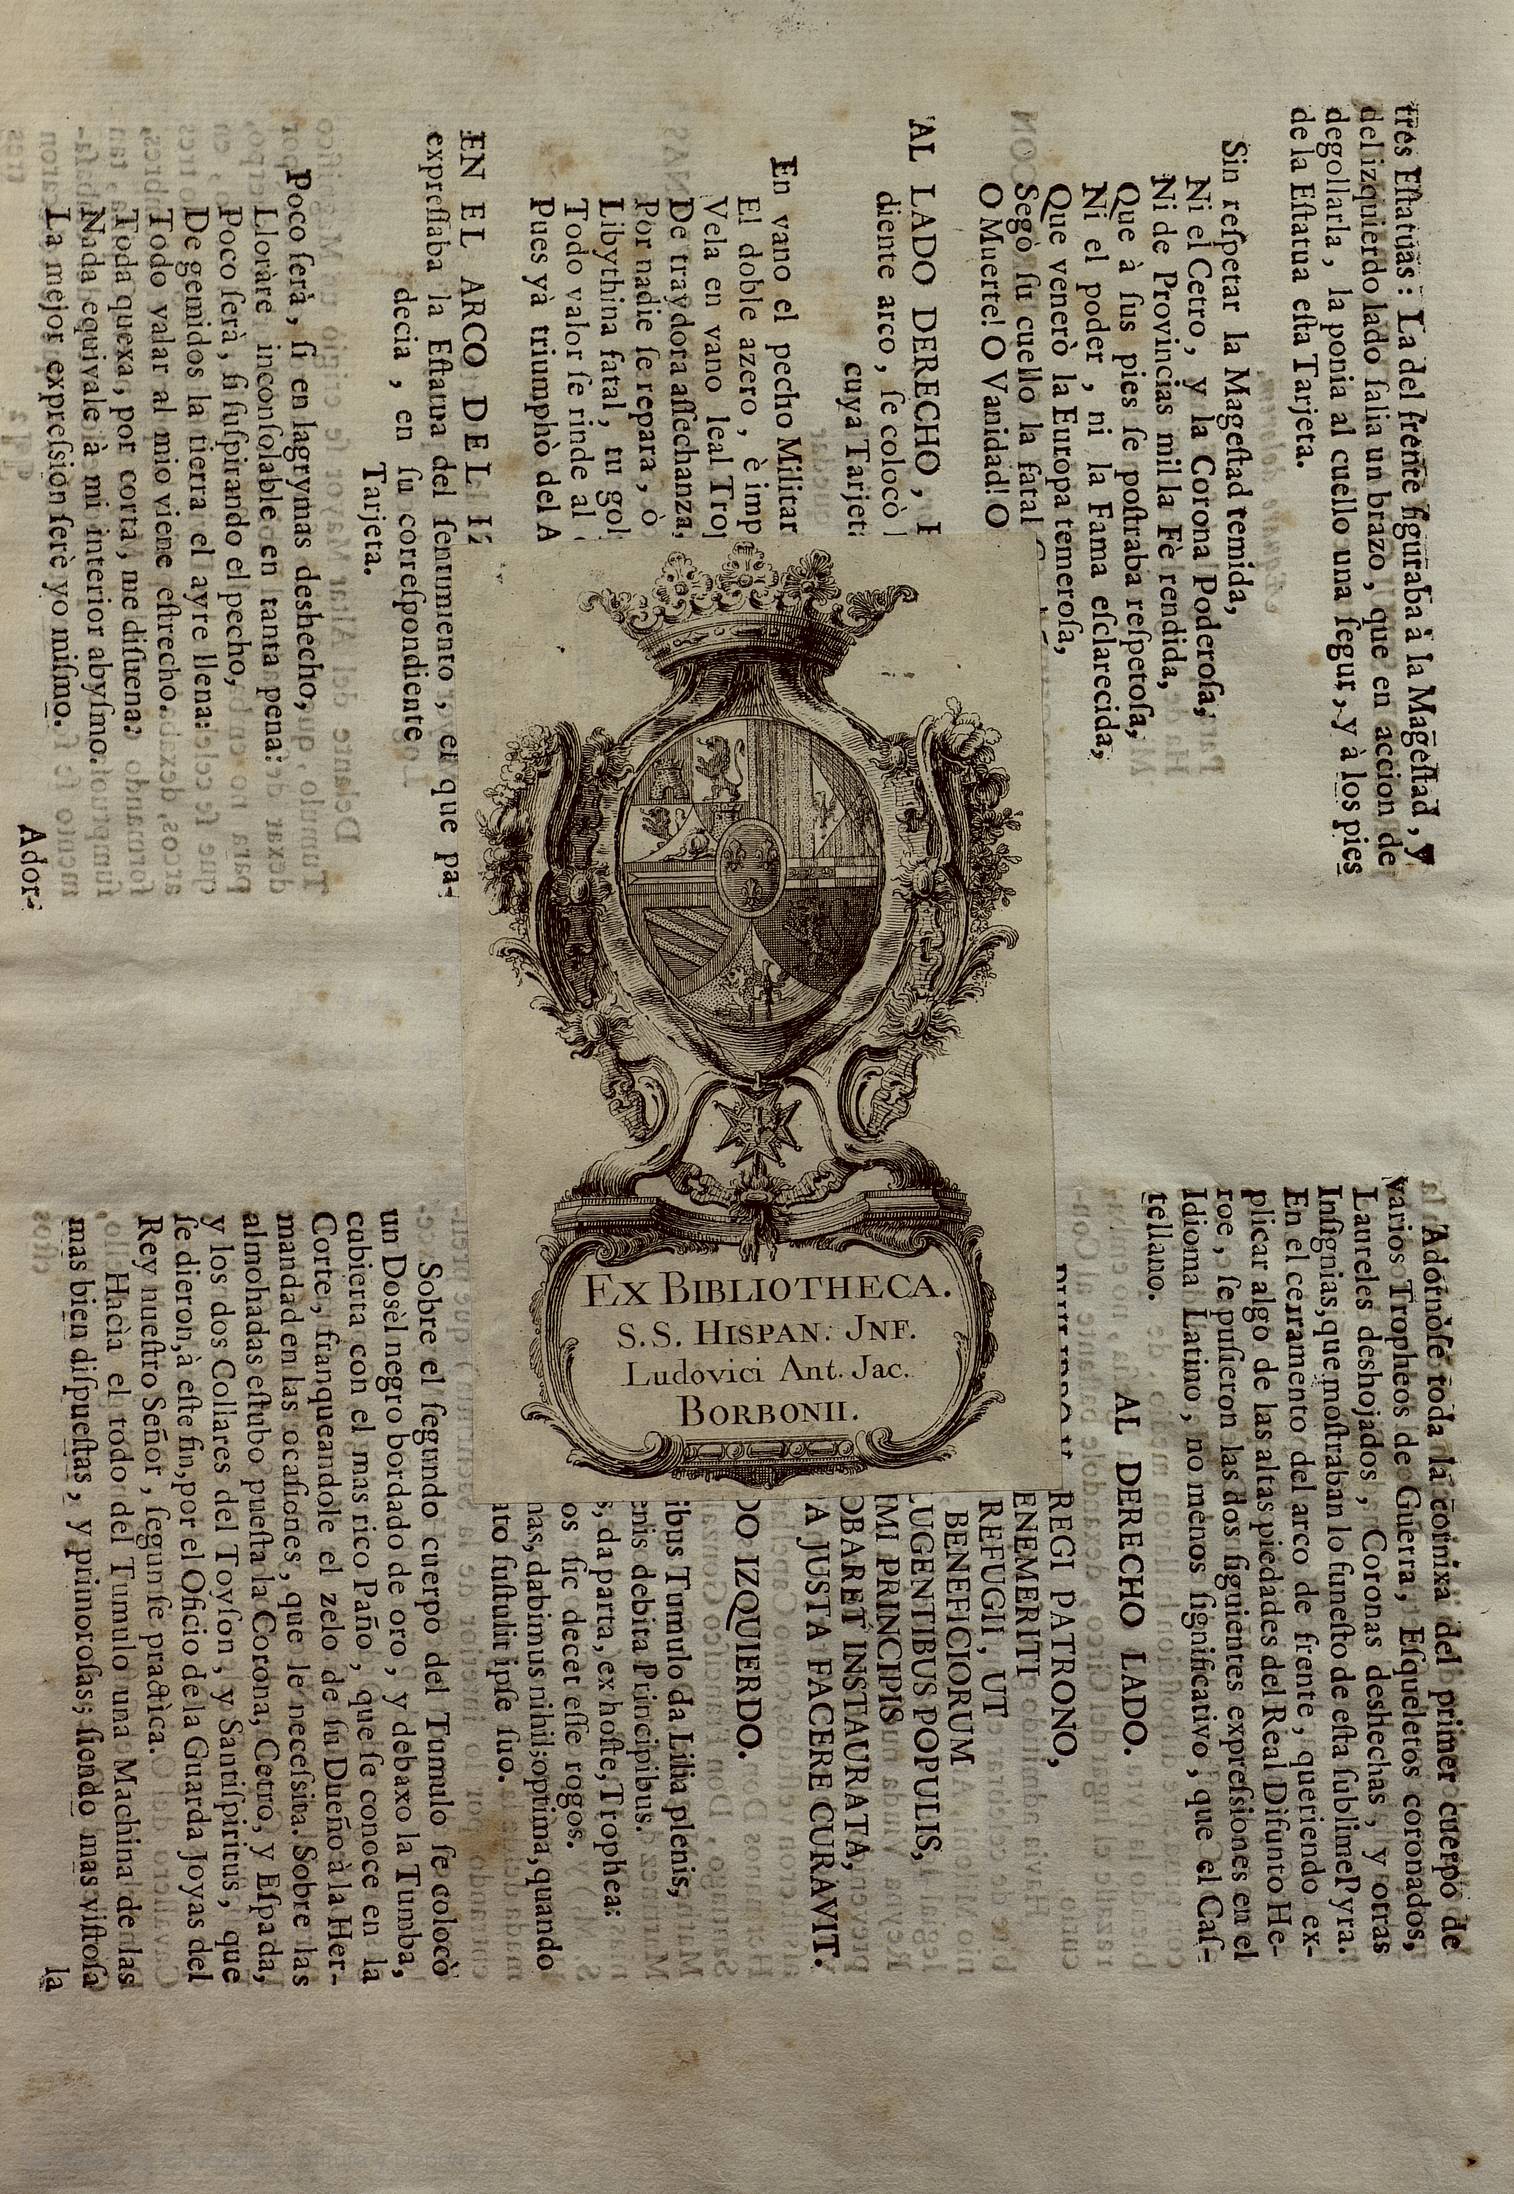 tres Eſtatuas: La del frente figuraba à la Mageſtad, y
del izquierdo lado ſalia un brazo, que en accion de
degollarla, la ponia al cuello una ſegur, y à los pies
de la Eſtatua eſta Tarjeta.
Sin reſpetar la Mageſtad temida,
Ni el Cetro, y la Corona Poderoſa,
Ni de Provincias mil la Fè rendida,
Que à ſus pies ſe poſtraba reſpetoſa,
Ni el poder, ni la Fama eſclarecida,
Que venerò la Europa temeroſa,
Segò ſu cuello la fatal
O Muerte! O Vanidad! O
AL LADO DERECHO,
diente arco, ſe colocò
cuya Tarjet
En vano el pecho Militar
El doble azero, è imp
Vela en vano leal Tro
De traydora aſſechanza,
Por nadie ſe repara, ò
Libythina fatal, tu gol
Todo valor ſe rinde al
Pues yà triumphò del A
EN EL ARCO DEL IZ
expreſſaba la Eſtatua del ſentimiento, el que pa-
decia, en ſu correſpondiente
Tarjeta.
Poco ſerà, ſi en lagrymas deshecho,
Lloràre inconſolable en tanta pena:
Poco ſerà, ſi ſuſpirando el pecho,
De gemidos la tierra el ayre llena:
Todo valar al mio viene eſtrecho.
Toda quexa, por corta, me diſuena?
Nada equivale à mi interior abyſmo.
La mejor expreſsion ſerè yo miſmo.
Ador-
Adornòſe toda la cornixa del primer cuerpo de
varios Tropheos de Guerra, Eſqueletos coronados,
Laureles deshojados, Coronas deshechas, y otras
Inſignias, que moſtraban lo funeſto de eſta ſublime Pyra.
En el cerramento del arco de frente, queriendo ex-
plicar algo de las altas piedades del Real Difunto He-
roe, ſe puſieron las dos ſiguientes expreſsiones en el
Idioma Latino, no menos ſignificativo, que el Caſ-
tellano.
AL DERECHO LADO.
REGI PATRONO,
ENEMERITI
REFUGII, UT
BENEFICIORUM
LUGENTIBUS POPULIS,
MI PRINCIPIS
OBARET INSTAURATA,
A JUSTA FACERE CURAVIT.
DO IZQUIERDO.
ibus Tumulo da Lilia plenis,
enis debita Principibus.
s, da parta, ex hoſte, Trophea:
os ſic decet eſſe rogos.
nas, dabimus nihil; optima, quando
ato ſuſtulit ipſe ſuo.
Sobre el ſegundo cuerpo del Tumulo ſe colocò
un Dosèl negro bordado de oro, y debaxo la Tumba,
cubierta con el mas rico Paño, que ſe conoce en la
Corte, franqueandole el zelo de ſu Dueño à la Her-
mandad en las ocaſiones, que le neceſsita. Sobre las
almohadas eſtubo pueſta la Corona, Cetro, y Eſpada,
y los dos Collares del Toyſon, y Santiſpiritus, que
ſe dieron, à eſte fin, por el Oficio de la Guarda Joyas del
Rey nueſtro Señor, ſegun ſe practìca.
Hacia el todo del Tumulo una Machina de las
mas bien diſpueſtas, y primoroſas; ſiendo mas viſtoſa
la
EX BIBLIOTHECA.
S.S. HISPAN. JNF.
Ludovici Ant. Jac.
BORBONII.